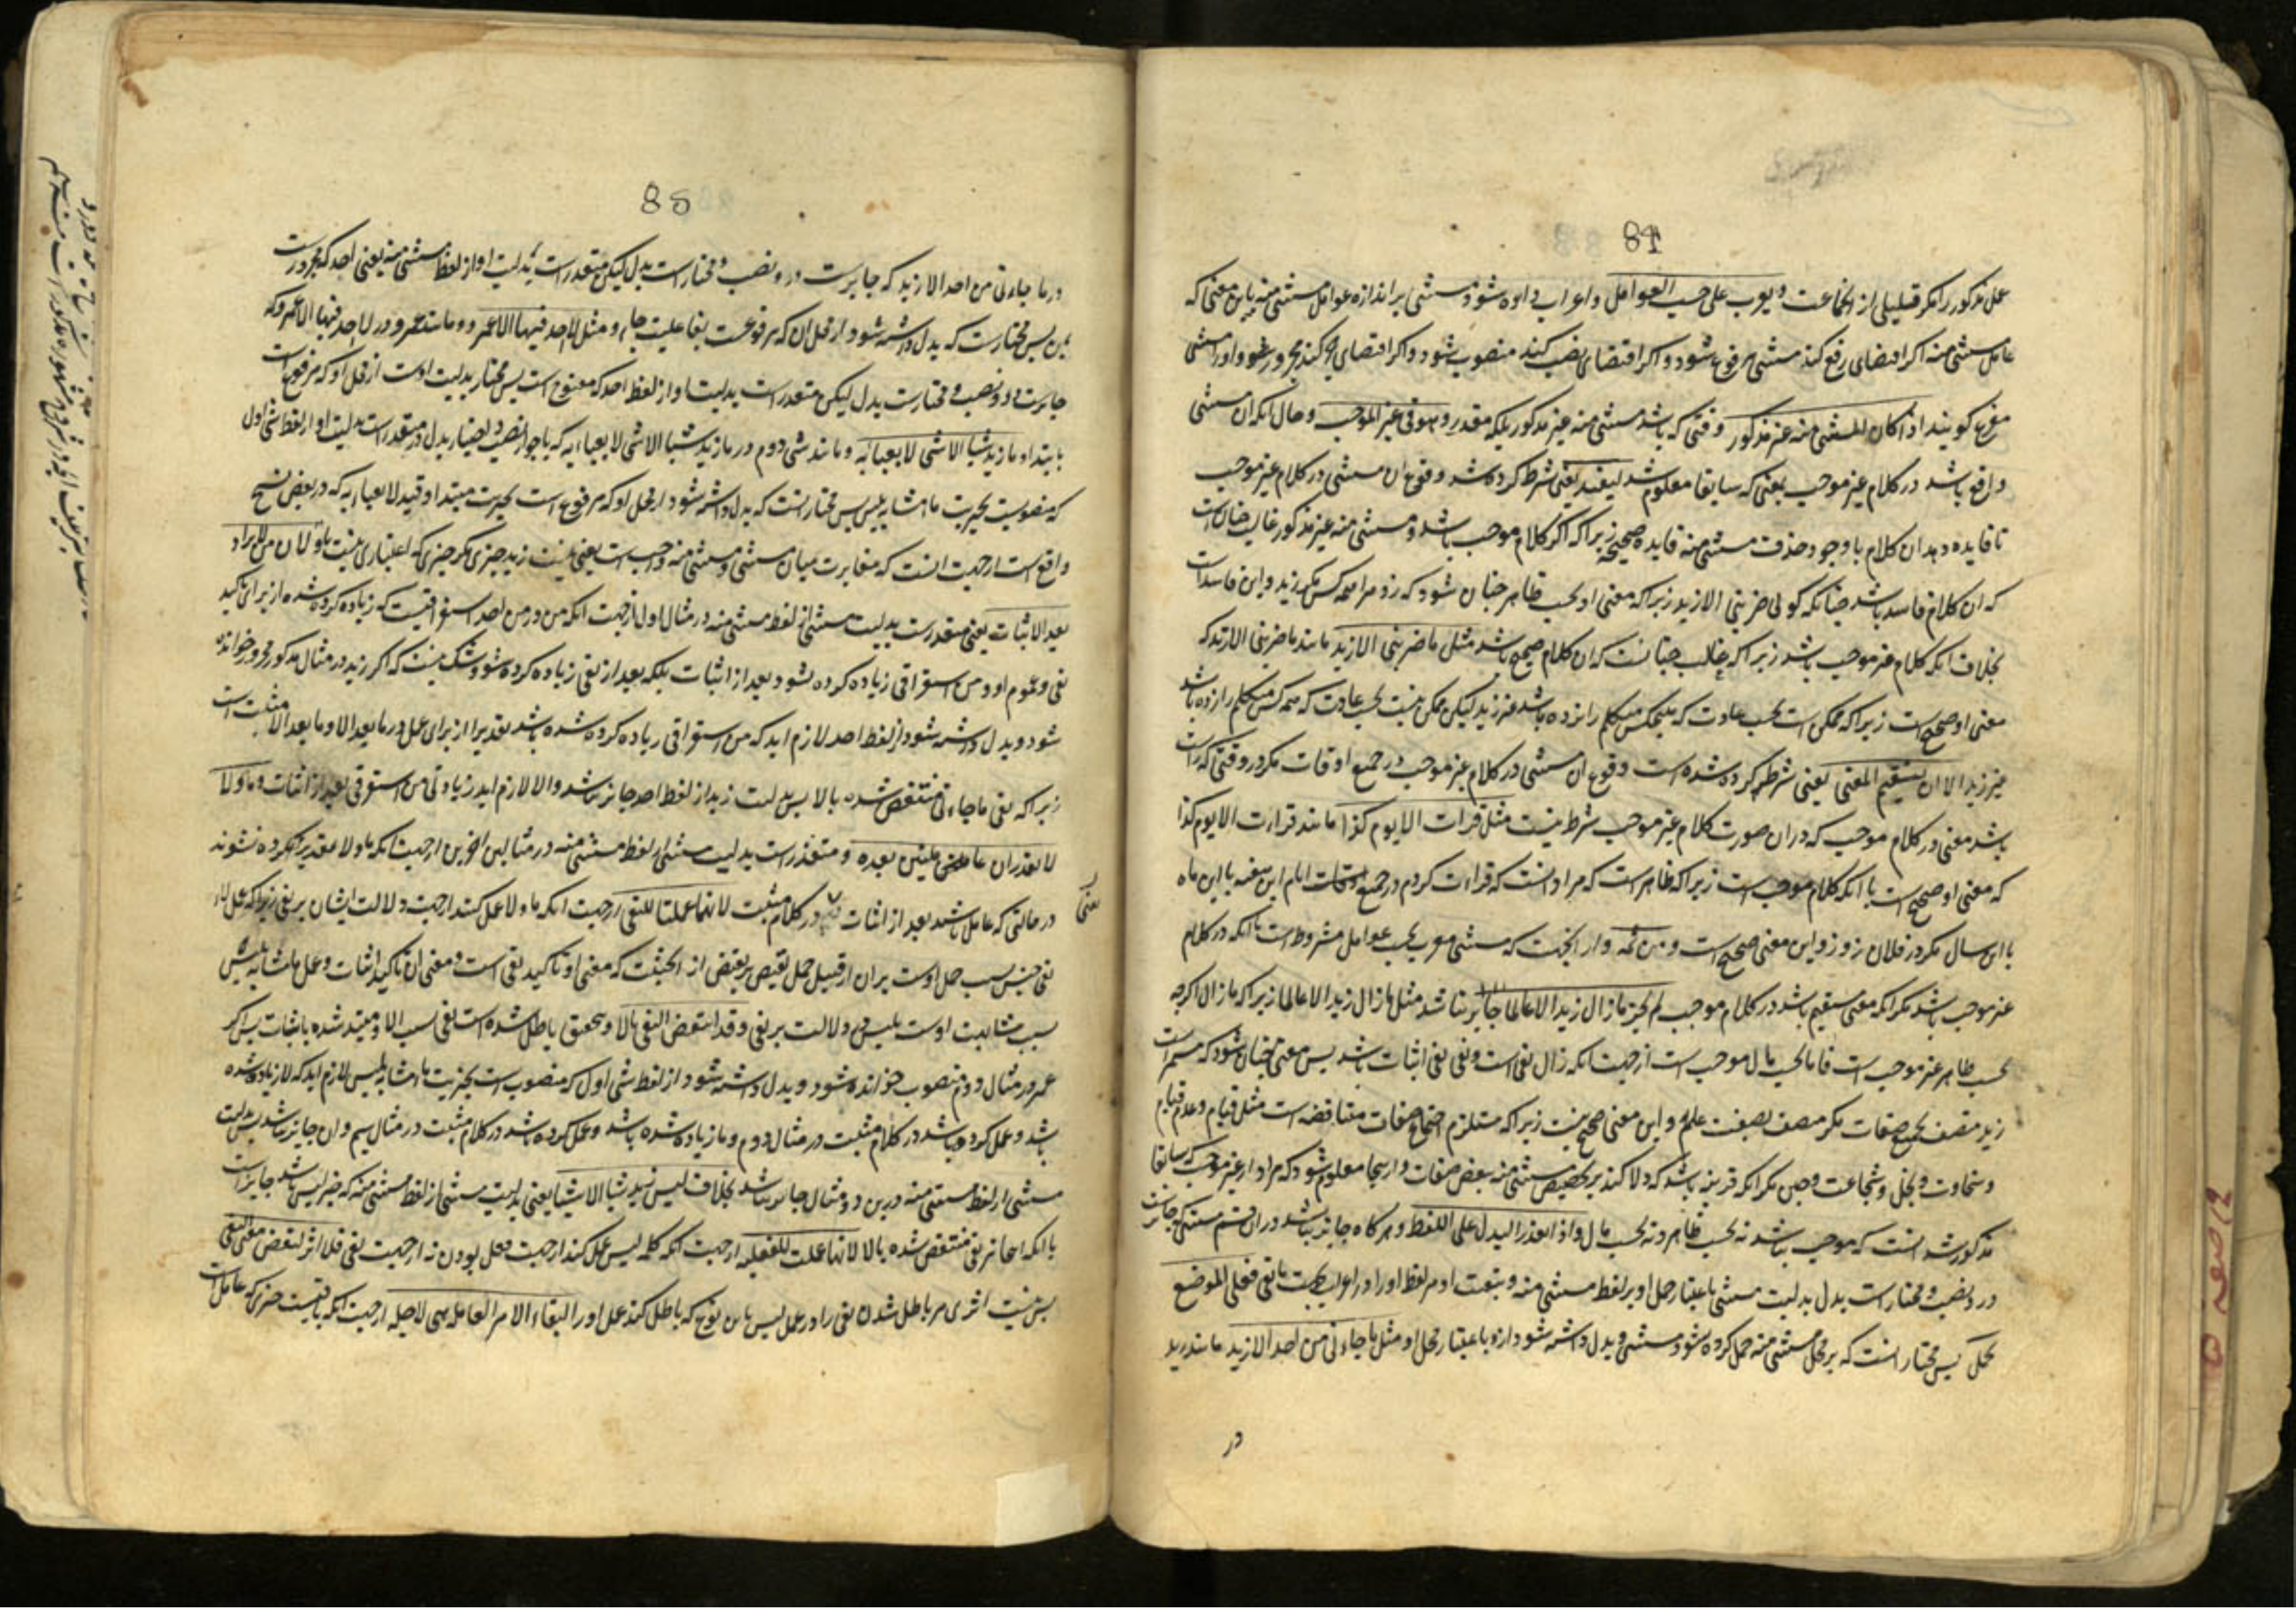 84
عمل مذکور را مگر قلیلی از جماعت و یعرب علی حسب العوامل و اعراب داده شود مستثنی بر اندازه عوامل مستثنی منه باین معنی که
عامل مستثنی منه اگر اقتضای رفع کند مستثنی مرفوع شود و اگر اقتضای نصب کند منصوب شود و اگر اقتضای جر کند مجرور شود و او را مستثنی
مفرغ گویند اذا کان المستثنی منه غیر مذکور وقتی که باشد مستثنی منه غیر مذکور بلکه مقدر و هو فی غیر الموجب و حال آنکه ان مستثنی
واقع باشد در کلام غیر موجب بمعنی که سابقا معلوم شد لیفید یعنی شرط کرده شد وقوع ان مستثنی در کلام غیر موجب
تا فایده دهد ان کلام با وجود حذف مستثنی منه فایده صحیحه زیرا که اگر کلام موجب باشد و مستثنی منه غیر مذکور غالب چنان است
که ان کلام فاسد باشد چنانکه گوئی ضربنی الا زید زیرا که معنی او بحسب ظاهر چنان شود که زد مرا همه کس مگر زید و این فاسد است
بخلاف آنکه کلام غیر موجب باشد زیرا که غالب چنانست که ان کلام صحیح باشد مثل ما ضربنی الا زید مانند ما ضربنی الا زید که
معنی او صحیح است زیرا که ممکن است بحسب عادت که هیچکس متکلم را نزده باشد غیر زید لیکن ممکن نیست بحسب عادت که همه کس متکلم را زده باشد
غیر زید الا ان یستقیم المعنی یعنی شرط کرده شده است وقوع ان مستثنی در کلام غیر موجب در جمیع اوقات مگر در وقتی که راست
باشد معنی در کلام موجب که در ان صورت کلام غیر موجب شرط نیست مثل قرات الا یوم کذا مانند قرات الا یوم کذا
که معنی او صحیح است با آنکه کلام موجب است زیرا که ظاهر است که مراد انست که قراءت کردم در جمیع اوقات ایام این هفته یا این ماه
یا این سال مگر در فلان روز و این معنی صحیح است و من ثمه و از اینجهت که مستثنی معرب بحسب عوامل مشروط است بانکه در کلام
غیر موجب باشد مگر آنکه معنی مستقیم باشد در کلام موجب لم یجز ما زال زید الا عالما جایز نباشد مثل ما زال زید الا عالما زیرا که ما زال اگرچه
بحسب ظاهر غیر موجب است فاما بحسب مال موجب است از جهت آنکه زال نفی است و نفی نفی اثبات باشد پس معنی چنان شود که مستمر است
زید متصف بجمیع صفات مگر متصف بصفت علم و این معنی صحیح نیست زیرا که مستلزم اجتماع صفات متناقضه است مثل قیام و عدم قیام
و سخاوت و بخل و شجاعت و جبن مگر آنکه قرینه باشد که دلالت کند بر تخصیص مستثنی منه ببعض صفات و از اینجا معلوم شود که مراد از غیر موجب که سابقا
مذکور شد انست که موجب نباشد نه بحسب ظاهر و نه بحسب مال و اذا تعذر البدل علی اللفظ و هرگاه جایز نباشد در ان قسم مستثنی که جایز است
در و نصب و مختار است بدل بدلیت مستثنی باعتبار حمل او بر لفظ مستثنی منه و تبعیت او مر لفظ او را در اعراب فعلی الموضع
بحمل پس مختار انست که بر محل مستثنی منه حمل کرده شود مستثنی و بدل داشته شود ازو باعتبار محل او مثل ما جاءنی من احد الا زید مانند زید
در
85
در ما جاءنی من احد الا زید که جایز است در و نصب و مختار است بدل لیکن متعذر است بدلیت او از لفظ مستثنی منه یعنی احد که مجرور است
بمن پس مختار است که بدل داشته شود از محل ان که مرفوعست بفاعلیت جاء و مثل لا احد فیها الا عمرو و مانند عمرو در لا احد فیها الا عمرو که
جایز است در و نصب و مختار است بدل لیکن متعذر است بدلیت او از لفظ احد که مفتوح است پس مختار بدلیت اوست از محل او که مرفوع است
بابتدا و ما زید شیئا الا شئ لا یعبا به و مانند شئ دوم در ما زید شیئا الا شئ لا یعبا به که با جواز نصب و اختیار بدل در متعذر است بدلیت او از لفظ شئ اول
که منصوبست بخبریت ما مشابه بلیس پس مختار انست که بدل داشته شود از محل او که مرفوع است بخبریت مبتدا و قید لا یعبا به که در بعض نسخ
واقع است از جهت انست که مغایرت میان مستثنی و مستثنی منه واجب است یعنی نیست زید چیزی مگر چیزی که اعتباری نیست باو لان من لا یزاد
بعد الاثبات یعنی متعذر است بدلیت مستثنی از لفظ مستثنی منه در مثال اول از جهت آنکه من در من احد استغراقیست که زیاده کرده شده از برای تاکید
نفی و عموم او و من استغراقی زیاده کرده نشود بعد از اثبات بلکه بعد از نفی زیاده کرده شود و شک نیست که اگر زید در مثال مذکور مجرور خوانده
شود و بدل داشته شود از لفظ احد لازم اید که من استغراقی زیاده کرده شده باشد تقدیرا از برای عمل در ما بعد الا و ما بعد الا مثبت است
زیرا که نفی ما جاءنی منتقض شده بالا پس بدلیت زید از لفظ احد جایز نباشد و الا لازم اید زیادتی من استغراقی بعد از اثبات و ما و لا
لا تقدران عاملتین بعده و متعذر است بدلیت مستثنی از لفظ مستثنی منه در مثالین اخیرین از جهت آنکه ما و لا تقدیر کرده نشوند
در حالتی که عامل باشند بعد از اثبات یعنی در کلام مثبت لانهما عملتا للنفی از جهت آنکه ما و لا عمل کنند از جهت دلالت ایشان بر نفی زیرا که عمل لاء
نفی جنس بسبب حمل اوست بر ان از قبیل حمل نقیض بر نقیض از انحیثیت که معنی او تاکید نفی است و معنی ان تاکید اثبات و عمل ما مشابه بلیس
بسبب مشابهت اوست بلیس در دلالت بر نفی و قد انتقض النفی بالا و بتحقیق باطل شده است نفی بسبب الا و مبتدل شده باثبات پس اگر
عمرو در مثال دوم منصوب خوانده شود و بدل داشته شود از لفظ شئ اول که منصوب است بخبریت ما مشابه بلیس لازم اید که لا زیاده شده
باشد و عمل کرده باشد در کلام مثبت در مثال دوم و ما زیاده شده باشد و عمل کرده باشد در کلام مثبت در مثال سیم و ان جایز نباشد پس بدلیت
مستثنی از لفظ مستثنی منه درین دو مثال جایز نباشد بخلاف لیس زید شیئا الا شیئا یعنی بدلیت مستثنی از لفظ مستثنی منه که خبر لیس باشد جایز است
با آنکه انجا نیز نفی منتقض شده بالا لانها عملت للفعلیه از جهت آنکه کلمه لیس عمل کند از جهت فعل بودن نه از جهت نفی فلا اثر لنقض معنی النفی
پس نیست اثری مر باطل شدن نفی را در عمل لیس باین نوع که باطل کند عمل او را لبقاء الامر العامله هی لاجله از جهت آنکه باقیست چیزی که عامل است